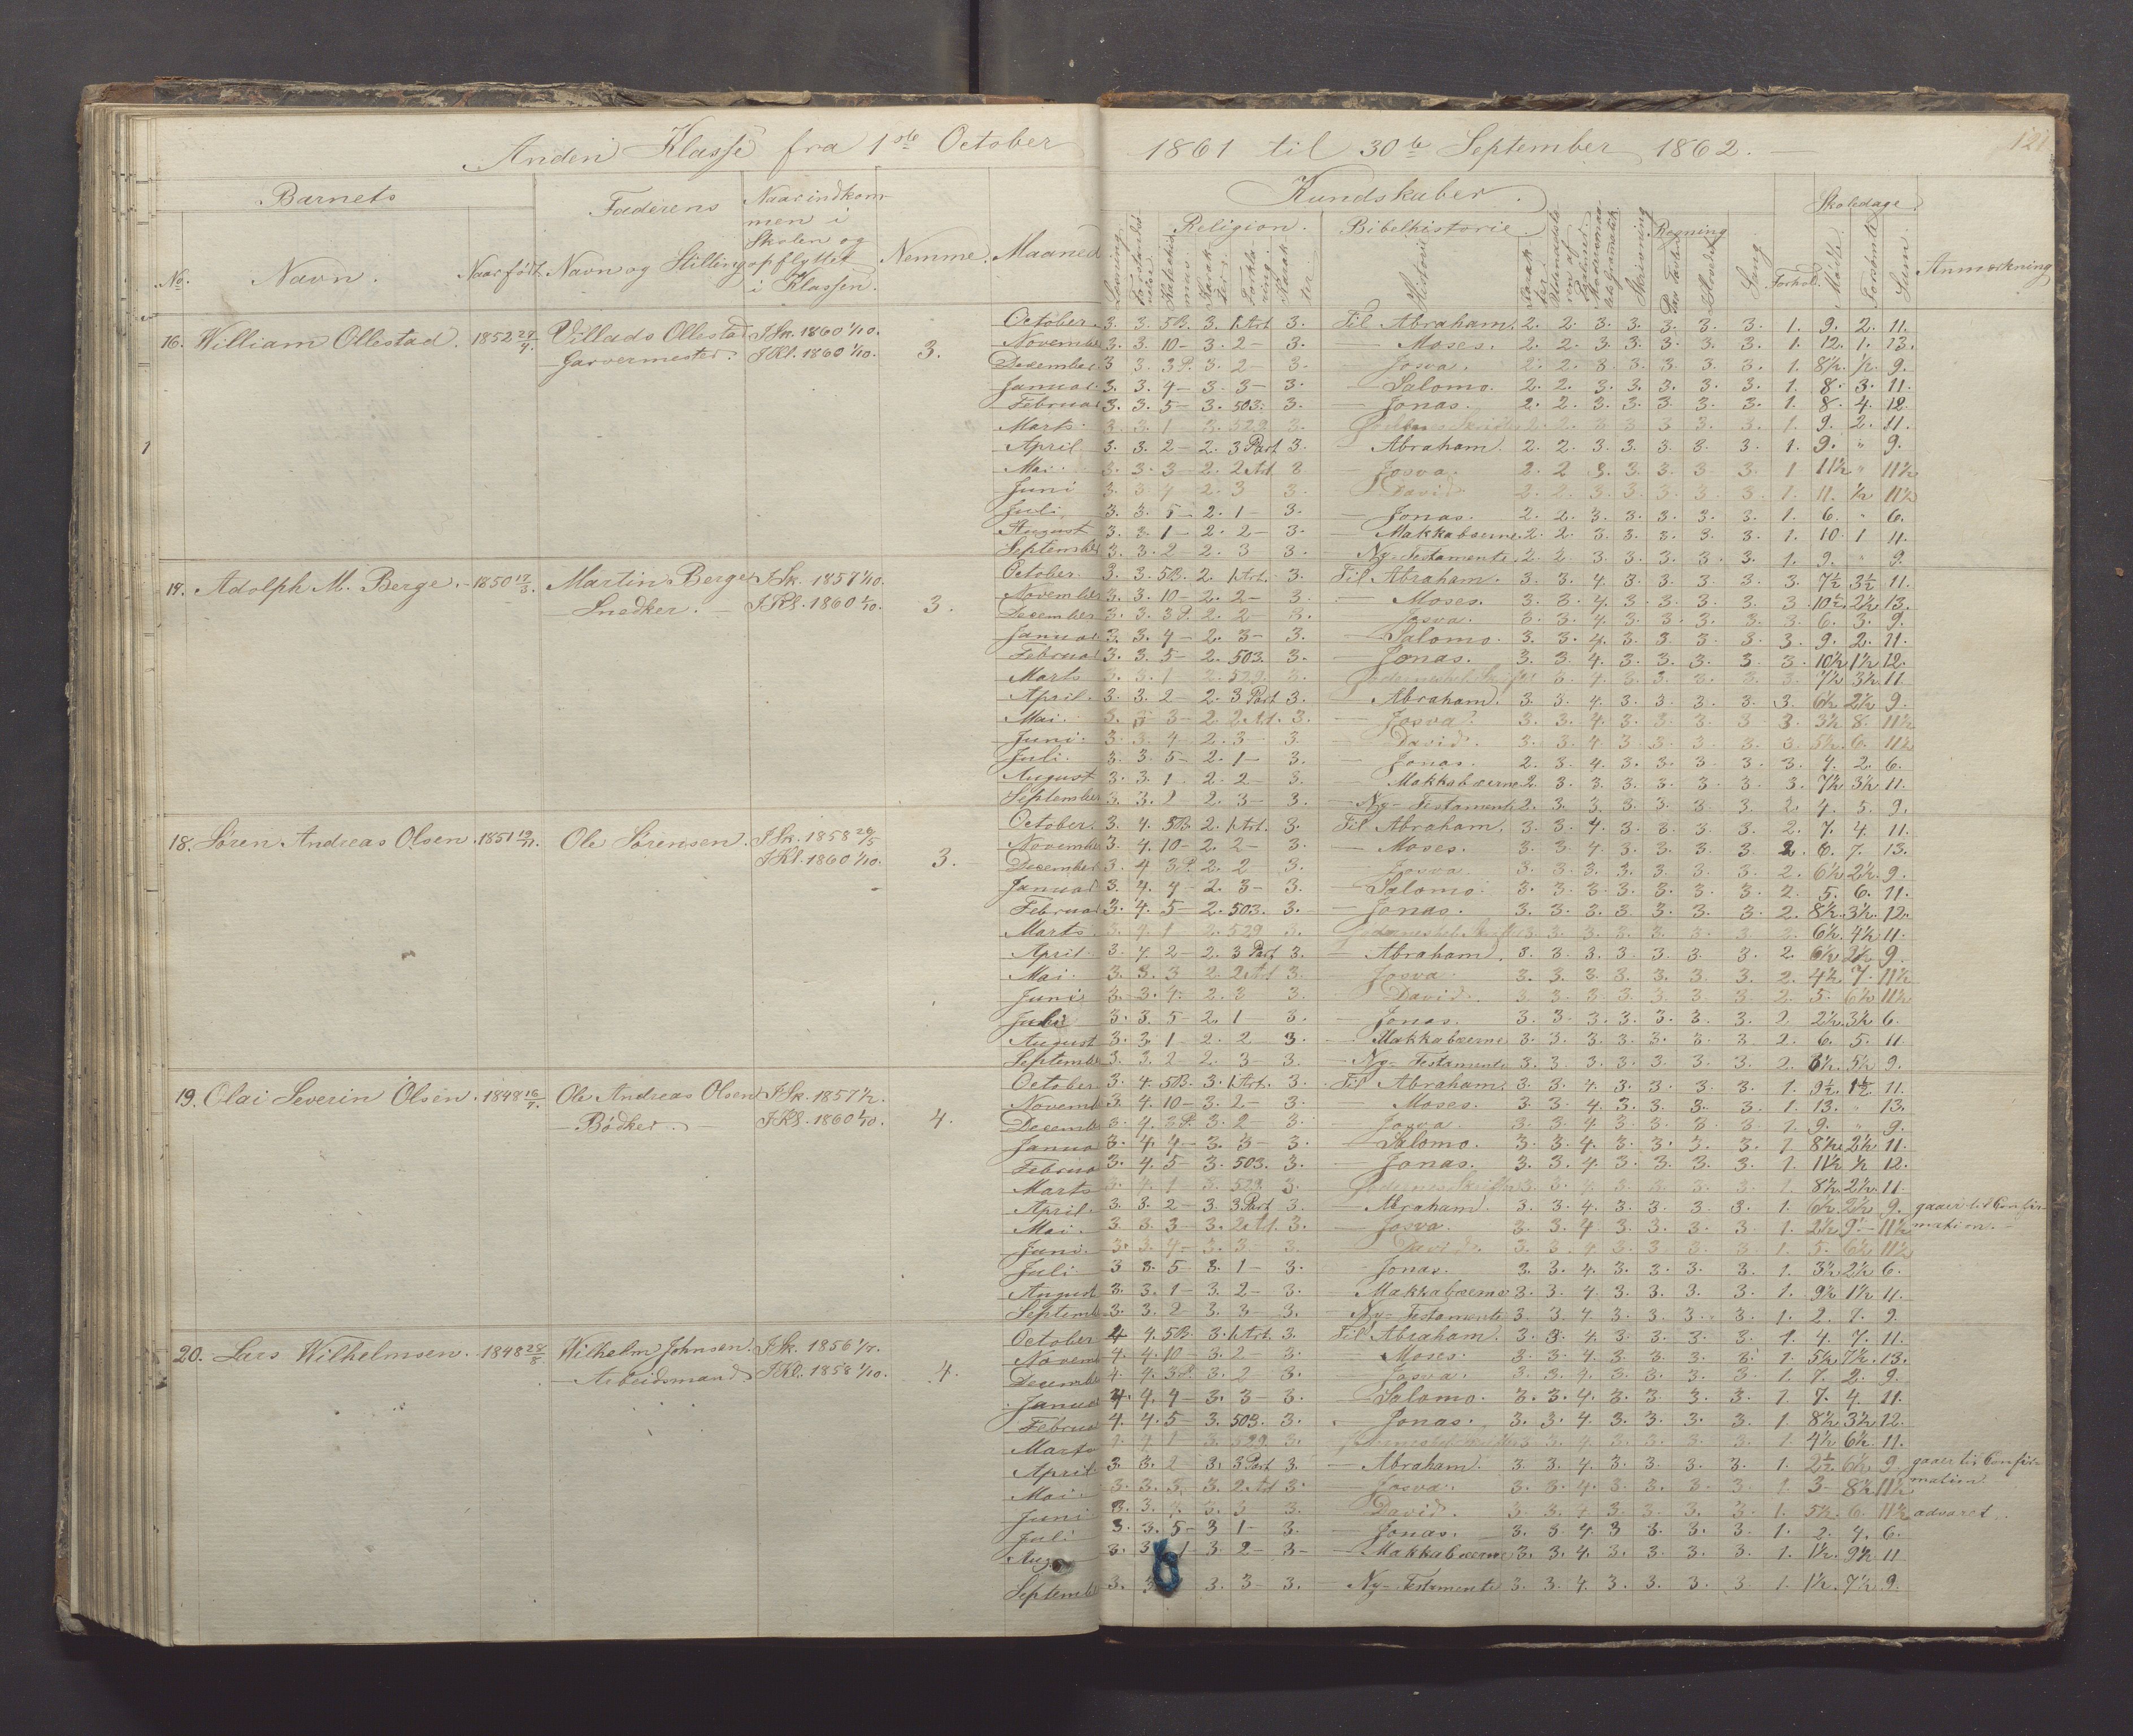 Anden Klasse fra 1ste October 1861 til 30te September 1862.
121
Barnets
Faderens
Naar indkom-
men i
Skolen og
opflyttet
i Klassen.
Nemme.
Maaned
Kundskaber.
Skoledage.
No.
Navn.
Naar født.
Navn og Stilling
Religion.
Bibelhistorie.
Historie
Skrivning
Regning
Sang
Forhold.
Mødte.
Forsømte
Sum.
Anmærkning
16. William Ollestad. 1852 Villads Ollestad I Sk. 1860 1/10.
Garvermester. I Kl. 1860 1/10. 3.
October. 3. 3. 5B. 3. 1 Art. 3. Til Abraham. 2. 2. 3. 3. 3. 3. 3. 1. 9. 2. 11.
November 3. 3. 10 - 3. 2 - 3. — Moses. 2. 2. 3. 3. 3. 3. 3. 1. 12. 1. 13.
December 3 3. 3P. 3. 2 - 3. — Josva. 2. 2. 3. 3. 3. 3. 3. 1. 8½. ½. 9.
Januar. 3. 3. 4 - 3. 3 - 3. — Salomo. 2. 2. 3. 3. 3. 3. 3. 1. 8. 3. 11.
Februar 3. 3. 5 - 3. 503. 3. — Jonas. 2. 2. 3. 3. 3. 3. 3. 1. 8. 4. 12.
Marts. 3. 3. 1 - 3. 529. 3. 2. 2. 3. 3. 3. 3. 3. 1. 9. 2. 11.
April 3. 3. 2 - 2. 3 Part 3. — Abraham. 2. 2. 3. 3. 3. 3. 3. 1. 9. " 9.
Mai. 3. 3. 3 - 2. 2 Art 3. — Josva. 2. 2 3. 3. 3. 3. 3. 1 11½ " 11½
Juni 3. 3 4 - 2. 3 3. — David. 2. 2. 3. 3. 3. 3. 3. 1. 11. ½ 11½
Juli. 3. 3. 5 - 2. 1 - 3. — Jonas. 2. 2. 3. 3. 3. 3. 3. 1. 6. " 6.
August 3. 3. 1 - 2. 2 - 3. — Makkabæerne. 2. 2. 3. 3. 3. 3. 3. 1. 10. 1 11.
September 3. 3. 2 - 2. 3 3. — Ny-Testamente. 2. 2. 3. 3. 3. 3. 3. 1. 9. " 9.
17. Adolph M. Berge. 1850 17/3. Martin Berge I Sk. 1857 1/10.
— Snedker. — I Kl. 1860 1/10. 3.
October. 3. 3. 5B. 2. 1 Art. 3. Til Abraham. 3. 3. 4. 3. 3. 3. 3. 3. 7½ 3½ 11.
November 3. 3. 10 - 2. 2 - 3. — Moses. 3. 3. 4. 3. 3. 3. 3. 3. 10½ 2½ 13.
December 3. 3. 3P. 2. 2 - 3. — Josva. 3. 3. 4. 3. 3. 3. 3. 3. 6. 3. 9.
Januar 3. 3. 4 - 2. 3 - 3. — Salomo. 3. 3. 4. 3. 3. 3. 3. 3. 9. 2. 11.
Februar 3. 3. 5 - 2. 503. 3. — Jonas. 3. 3. 4. 3. 3. 3. 3. 3. 10½ 1½ 12.
Marts 3. 3. 1 - 2. 529. 3. 3. 4. 3. 3. 3. 3. 3. 7½ 3½ 11
April. 3. 3. 2 - 2. 3 Part 3. — Abraham. 3. 3. 4. 3. 3. 3. 3. 3. 6½ 2½ 9.
Mai. 3. 3 3 - 2. 2 Art. 3. — Josva. 3. 3. 4. 3. 3. 3. 3 3. 3½ 8. 11½
Juni. 3. 3. 4 - 2. 3 - 3. — David. 3. 3. 4. 3. 3. 3. 3. 3. 5½. 6. 11½
Juli. 3. 3. 5 - 2. 1 - 3. — Jonas. 2. 3. 4. 3. 3. 3. 3. 3. 4. 2. 6.
August 3. 3. 1 - 2. 2 - 3. — Makkabæerne 2. 3. 3. 3. 3. 3. 3. 3. 7½ 3½ 11.
September 3. 3. 2 - 2. 3 - 3. — Ny-Testamente 2. 3. 3. 3. 3. 3. 3. 2. 4. 5. 9.
18. Søren Andreas Olsen. 1851 19/11. Ole Sørensen. I Sk. 1858 29/5
I Kl. 1860 1/10. 3.
October. 3. 4. 5B. 2. 1 Art. 3. Til Abraham. 3. 3. 4. 3. 3. 3. 3. 2. 7. 4. 11.
November 3. 4. 10 - 2. 2 - 3. — Moses. 3. 3. 4. 3. 3. 3. 3. 2. 6. 7. 13.
December 3. 4 3P. 2. 2 3. — Josva. 3. 3. 3. 3. 3. 3. 3. 2. 6½ 2½. 9.
Januar 3. 4. 4 - 2. 3 - 3. — Salomo. 3. 3. 3. 3. 3. 3. 3. 2. 5. 6. 11.
Februar 3. 4. 5 - 2. 503. 3. — Jonas. 3. 3. 3. 3. 3. 3. 3. 2. 8½. 3½. 12.
Marts 3. 4. 1 2. 529 3. 3. 3. 3. 3. 3. 3. 3. 2. 6½. 4½ 11.
April. 3. 4. 2 - 2. 3 Part 3. — Abraham. 3. 3. 3. 3. 3. 3. 3. 2. 6½ 2½ 9.
Mai 3. 3. 3 2. 2 Art 3. — Josva. 3. 3. 3. 3. 3. 3. 3. 2. 4½. 7. 11½
Juni 3. 3. 4. 2. 3 3. — David. 3. 3. 3. 3. 3. 3. 3. 2. 5. 6½ 11½
Juli 3. 3. 5 - 2. 1 - 3. — Jonas. 3. 3. 3. 3. 3. 3. 3. 2. 2½. 3½ 6.
August 3. 3. 1 - 2. 2 3. — Makkabæerne 3. 3. 3. 3. 3. 3. 3 2. 6. 5. 11.
September 3. 3. 2 - 2. 3 - 3. — Ny-Testamente 3. 3. 3. 3. 3. 3. 3. 2. 5½ 9.
19. Olai Severin Olsen. 1848 16/7. Ole Andreas Olsen I Sk. 1857 1/2.
— Bødker. — I Kl. 1860 1/10. 4.
October. 3. 4. 5B. 3. 1 Art. 3. Til Abraham. 3. 3. 4. 3. 3. 3. 3. 1. 9½. 1½. 11.
Novemb 3. 4. 10 - 3. 2 - 3. — Moses. 3. 3. 4. 3. 3. 3. 3. 1. 13. " 13.
Decemb 3. 4. 3P. 3. 2 - 3. — Josva. 3. 3. 4. 3. 3. 3. 3. 1. 9. " 9.
Janua 3. 4. 4 - 3. 3 - 3. — Salomo. 3. 3. 4. 3. 3. 3. 3. 1 8½ 2½. 11.
Februa 3. 4. 5 - 3. 503. 3. — Jonas. 3. 3. 4. 3. 3. 3. 3. 1. 11½ ½ 12.
Marts 3. 4. 1 - 3. 529. 3. 3. 3. 4. 3. 3. 3. 3. 1. 8½. 2½. 11.
April. 3. 3. 2 - 3. 3 Part 3. — Abraham. 3. 3. 4. 3. 3. 3. 3. 1. 6½. 2½ 9. gaaer til Confir-
Mai. 3. 3. 3 - 3. 2 Art. 3. — Josva. 3. 3. 4 3. 3. 3. 3 1. 2½ 9. 11½ mation. —
Juni. 3. 3. 4 - 3. 3 - 3. — David. 3. 3. 4 3. 3 3. 3 1. 5. 6½ 11½
Juli 3 3. 5 - 3. 1 - 3. — Jonas. 3. 3. 4. 3. 3. 3. 3. 1. 3½ 2½ 6.
August 3. 3. 1 - 3. 2 - 3. — Makkabæerne 3. 3. 4. 3. 3. 3. 3. 1. 9½ 1½ 11.
Septemb 3. 3. 2 - 3. 3 - 3. — Ny-Testamente 3. 3. 4 3. 3. 3. 3. 1. 2. 7. 9.
20. Lars Wilhelmsen. 1848 28/8. Wilhelm Johnsen. I Sk. 1856
— Arbeidsmand. I Kl. 1858 1/10. 4.
October 4 4. 5B. 3. 1 Art. 3. Til Abraham. 3. 3. 4. 3. 3. 3. 3. 1. 4. 7. 11.
Novemb 4. 4. 10 - 3. 2 - 3. — Moses. 3. 3. 4. 3. 3. 3. 3. 1. 5½ 7½. 13.
Decembe 4. 4. 3P. 3. 2 3. — Josva. 3. 3. 4. 3. 3. 3. 3. 1. 7. 2. 9.
Januar 4. 4. 4 - 3. 3 - 3. — Salomo. 3. 3. 4. 3. 3 3. 3. 1 7. 4. 11.
Februa 4. 4. 5 - 3. 503. 3. — Jonas. 3. 3. 4. 3. 3. 3. 3. 1. 8½ 3½ 12.
Marts 4. 4. 1 3. 529. 3. 3 3. 4. 3. 3. 3. 3. 1. 4½ 6½. 11.
April. 3. 3. 2 - 3. 3 Part 3. — Abraham. 3. 3. 4. 3. 3. 3. 3. 1. 2½ 6½ 9. gaaer til Confir-
Mai. 3. 3. 3. 3. 2 Art 3. — Josva. 3. 3. 4. 3. 3. 3. 3. 1. 3 - 8½ 11½ mation.
Juni 3. 3. 3. 3 3. David. 3. 3. 4 3. 3. 3. 3. 1. 5½. 6. 11½ advaret.
Juli 3. 3. 5 - 3 1 - 3. — Jonas. 3. 3. 4. 3 3. 3. 3. 1. 2. 4. 6.
Aug 3. 3 1 - 3. 2 - 3 - — Makkabæerne 3. 3. 4. 3. 3. 3. 3. 1. 1½. 9½ 11
Septembe 3. 3 3. 3 - 3. — Ny-Testamente 3. 3. 4. 3. 3. 3. 3. 1. 1½. 7½ 9.